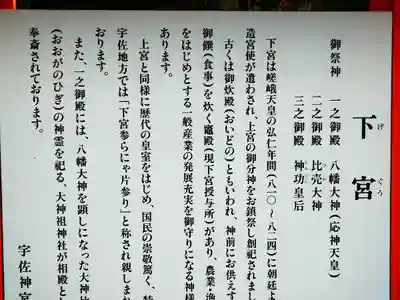 下宮
げぐう
御祭神
一之御殿 八幡大神(応神天皇)
二之御殿 比売大神
三之御殿 神功皇后
下宮は嵯峨天皇の弘仁年間(八一〇~八二四)に朝廷よ
造宮使が遣わされ、上宮の御分神をお鎮祭し創祀されまし
古くは御炊殿(おいどの)ともいわれ、神前にお供えす
御饌(食事)を炊く竈殿(現下宮授与所)があり、農業・漁
をはじめとする一般産業の発展充実を御守りになる神様
あります。
上宮と同様に歴代の皇室をはじめ、国民の崇敬篤く、特
宇佐地方では「下宮参らにゃ片参り」と称され親しまれ
おります。
また、一之御殿には、八幡大神を顕しになった大神比
(おおがのひぎ)の神霊を祀る、大神祖神社が相殿と
奉斎されております。
宇佐神宮